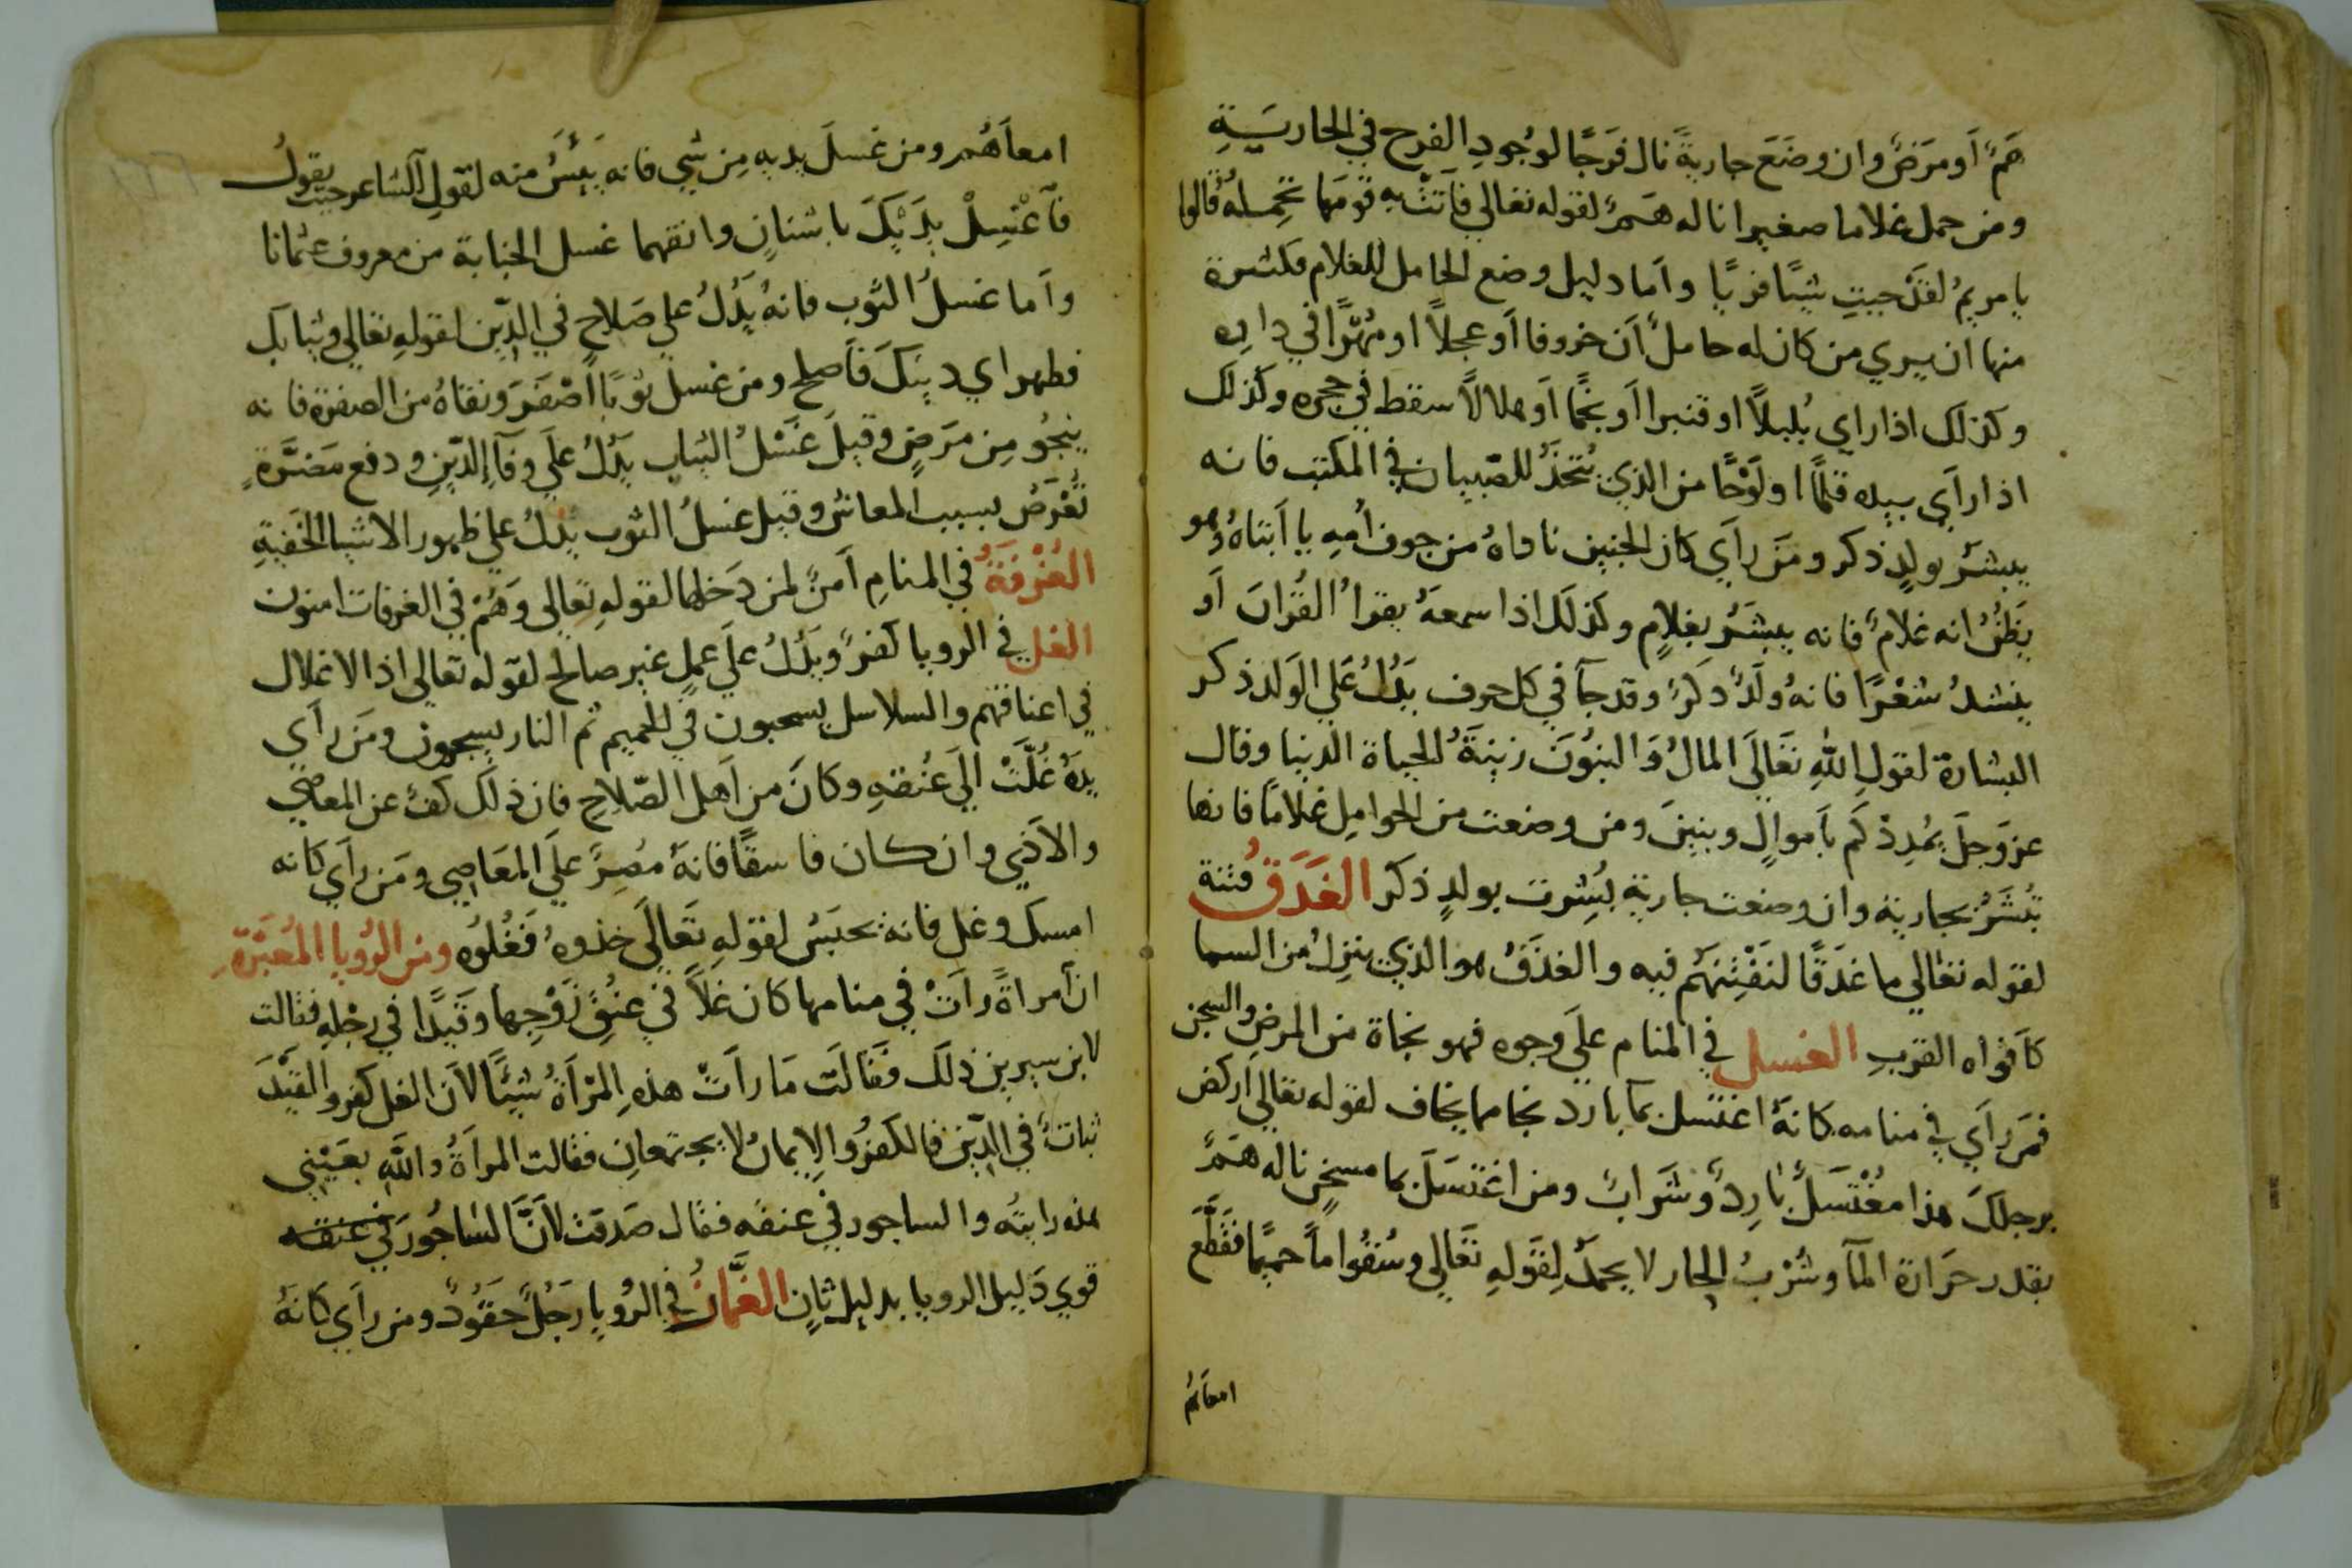 هَمٌّ اَو مرَضٌ وان وضَعَ جاريةً نال فَرَجًا لوُجودِ الفرح في الجاريَــةِ
ومن حمل غلاما صغيرا ناله هَــمٌّ لقوله تعالي فاَتَتْ به قومَها تحمِــلهُ قالوا
يا مريمُ لقَدْ جيتِ شيًا فريًا واَما دليل وضع الحامل للغلام فكثيرة
منها ان يري من كان له حاملٌ اَن خروفا اَو عجلاً او مُهْرًا في داره
وكذلك اذا راي بُلبلاً او قنبرا اَو نجمًا اَو هلالاً سقط في حجره وكذلك
اذا راَي بيده قلمًا او لَوْحًا من الذي يُتَّخذُ للصّبيان في المكتب فانه
يبشرُ بولدٍ ذكر ومَن راَي كان الجنين ناداهُ من جوف اُمِه يا اَبتاهُ وهو
يَظنُّ انه غلامٌ فانه يبشرُ بغلامٍ وكذلك اذا سمعهُ يقراُ القُراَن اَو
ينشدُ شعْرًا فانهُ ولَدٌ ذكَرٌ وقد جآَ في كل حرف يدُلُ عَلي الوَلد ذكر
البشارة لقولِ اللهِ تعَالَي المالُ وَالبنُونَ زِينَةُ الحياة الدنيا وقال
عز وَجلَ يُمْدِدْكم باَموالٍ وبنينَ ومن وضعت من الحوامِل غلامًا فانها
تُبَشَّرُ بجارية وان وضعت جارية بُشِرت بولدٍ ذكر الغَدَقُ فتنة
لقوله تعالي ما غدَقًا لنَفْتِنَهُم فيه والغدَقُ هو الذي ينزِلُ من السما
كاَفواه القِرَبِ الغسل في المنام علَي وجوه فهو نجاة من المرضِ والسجن
فمَن راَي في منامه كانهُ اغتسل بمآ بارد نجا مما يخاف لقوله تعالي اَركض
برجلكَ هذا مُغْتسَلٌ بارِدٌ وشَرابٌ ومن اغتسَلَ بما مسخنٍ ناله هَــمٌّ
بقدر حَرَارة المآَ وشُرْبُ الحار لا يحمدُ لِقَولِهِ تعَالي وسُقُوا ماً حميمًا فقَطَّعَ
امعاَهُم
امعاَهُم ومن غسلَ يديه مِن شي فانه يَيْئَسُ منه لقولِ الشاعر حيث يقولُ
فاَغْسِلْ يدَيْكَ باشنانٍ وانقهما غسل الجنابة من معروف عثمانا
واَما غسلُ الثوب فانهُ يَدُلُ علي صَلاحٍ في الدّين لقولهِ تعالي وثيابك
فطهر اي دينكَ فاَصلح ومن غسلَ ثوبًا اَصْفَرَ ونقاهُ من الصفرة فانه
ينجُو مِن مرَضٍ وقيلَ غَسْلُ الثياب يدُلُ علَي وفآَ الدّينِ ودفع مَضرَّةٍ
تُعْرَضُ بسبب المعاش وقيل غسلُ الثوب يَدُلُ علي ظهور الاشيا الخَفيةِ
الغُرْفةُ في المنامِ اَمنٌ لمن دَخلها لقولهِ تعالي وَهُمْ في الغرفات امنون
الغل في الرويا كفرٌ ويدُلُ علَي عملٍ غير صالح لقوله تعالي اذ الاغلال
في اعناقهم والسلاسل يسحبون في الحميم ثم النار يسجرون ومَن راَي
يدَهُ غُلَّتْ الَي عُنقهِ وكانَ من اَهل الصّلاحِ فان ذلك كفٌ عن المعاصي
والاَذي وان كان فاسقًا فانهُ مُصِرٌ علَي المعَاصي ومَن راَي كانه
امسك وغل فانهُ يحبَسُ لقولهِ تعَالَي خذوهُ فَغُلُوُه ومن الرُويا المُعبَّرَةِ
اَن امراةً راَتْ في منامها كان غلاً في عنُقِ زَوْجِها وقَيدًا في رِجْلهِ فقالت
لابن سيرين ذلك فقالت مَا راَتْ هذهِ المرْاَةُ شيئًا لاَن الغل كفر والقيْدَ
ثباتٌ في الدّين فالكفرُ والايمانُ لا يجتمعانِ فقالت المراَةُ واللهِ بعَيْنِي
هذه رايته والساجور في عنقه فقال صَدقت لاَنَّ الساجُورَ في عنقه
قوي دَليل الرويا بدليل ثانٍ الغمَّازُ في الرُويا رَجُلٌ حَقوُدٌ ومن راَي كانهُ